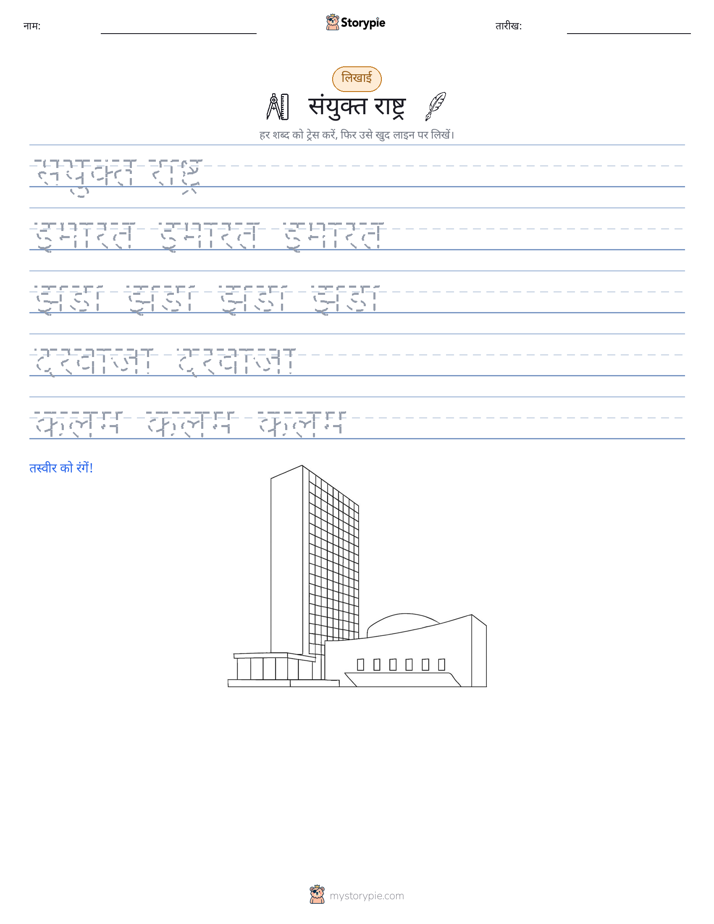 नाम:
Storypie
तारीख:
लिखाई
संयुक्त राष्ट्र
हर शब्द को ट्रेस करें, फिर उसे खुद लाइन पर लिखें।
सयुक्त राष्ट्र
इमारत इमारत इमारत
झडा झडा झडा झडा
दरवाजा दरवाजा
कलम कलम कलम
तस्वीर को रंगें!
mystorypie.com